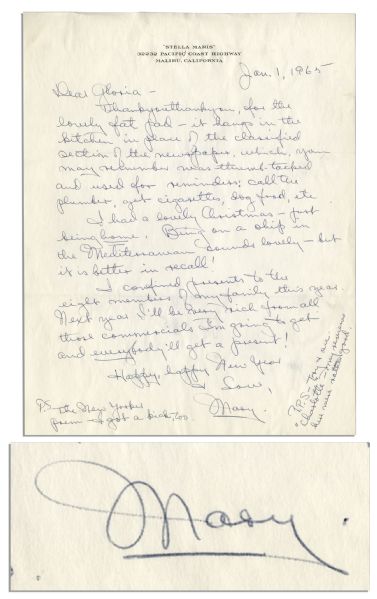 "STELLA MARIS"
32232 PACIFIC COAST HIGHWAY
MALIBU, CALIFORNIA
Jan. 1, 1965
Dear Gloria -
Thankyouthankyou, for the
lovely fat pad - it hangs in the
kitchen in place of the classified
section of the newspaper, which, you
may remember was thumb-tacked
and used for reminders: call the
plumber, get cigarettes, dog food, etc
I had a lovely Christmas - just
being home. Being on a ship in
the Mediterranean sounds lovely - but
it is better in recall!
I confined presents to the
eight members of my family this year.
Next year I'll be very rich from all
those commercials I'm going to get
and everybody'll get a present!
Happy, happy New Year
& Love,
Mary.
P.S. The New Yorker
poem - I got a kick, too.
P.P.S. - Try &
"Charlotte" - my
rather good.
Mary.